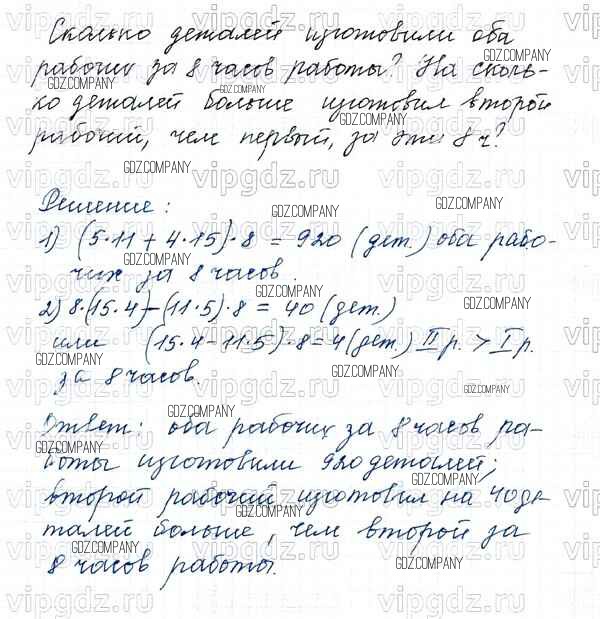 Сколько деталей изготовили оба
рабочих за 8 часов работы? На сколь-
ко деталей больше изготовил второй
рабочий, чем первый, за эти 8 ч?
Решение:
1) (5·11 + 4·15)·8 = 920 (дет.) оба рабо-
чих за 8 часов.
2) 8·(15·4)-(11·5)·8 = 40 (дет.)
или (15·4-11·5)·8=4(дет.) II р. > I р.
за 8 часов.
Ответ: оба рабочих за 8 часов ра-
боты изготовили 920 деталей;
второй рабочий изготовил на 40 де-
талей больше, чем второй за
8 часов работы.